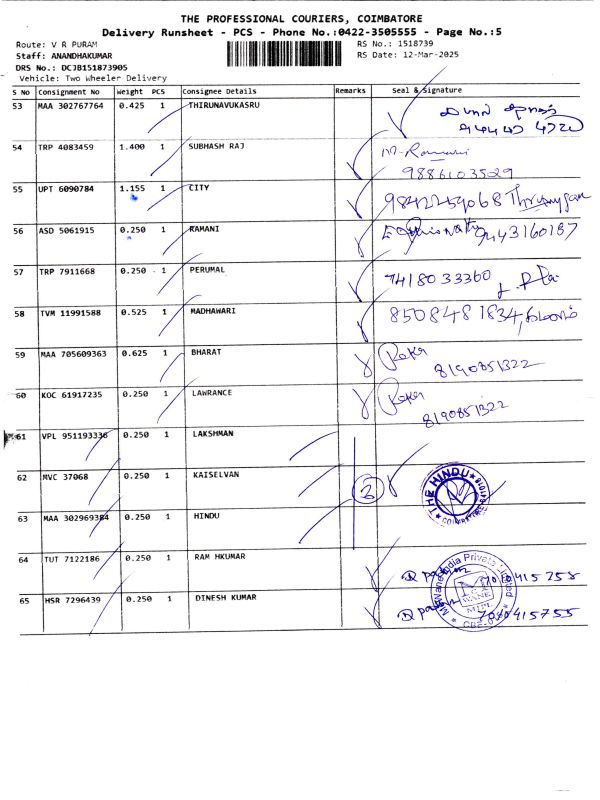 THE PROFESSIONAL COURIERS, COIMBATORE
Delivery Runsheet - PCS - Phone No.:0422-3505555 - Page No.:5
Route: V R PURAM RS No.: 1518739
Staff: ANANDHAKUMAR RS Date: 12-Mar-2025
DRS No.: DCJB151873905
Vehicle: Two Wheeler Delivery
S No Consignment No Weight PCS Consignee Details Remarks Seal & Signature
53 MAA 302767764 0.425 1 THIRUNAVUKASRU
54 TRP 4083459 1.400 1 SUBHASH RAJ
9886103529
55 UPT 6090784 1.155 1 CITY 9842259068
56 ASD 5061915 0.250 1 RAMANI 9443160187
57 TRP 7911668 0.250 1 PERUMAL 7418033360
58 TVM 11991588 0.525 1 MADHAWARI 8508481834,
59 MAA 705609363 0.625 1 BHARAT Reka
8190851322
60 KOC 61917235 0.250 1 LAWRANCE Reka
8190851322
61 VPL 951193336 0.250 1 LAKSHMAN
62 MVC 37068 0.250 1 KAISELVAN
3 THE HINDU
63 MAA 302969384 0.250 1 HINDU
64 TUT 7122186 0.250 1 RAM HKUMAR
65 HSR 7296439 0.250 1 DINESH KUMAR